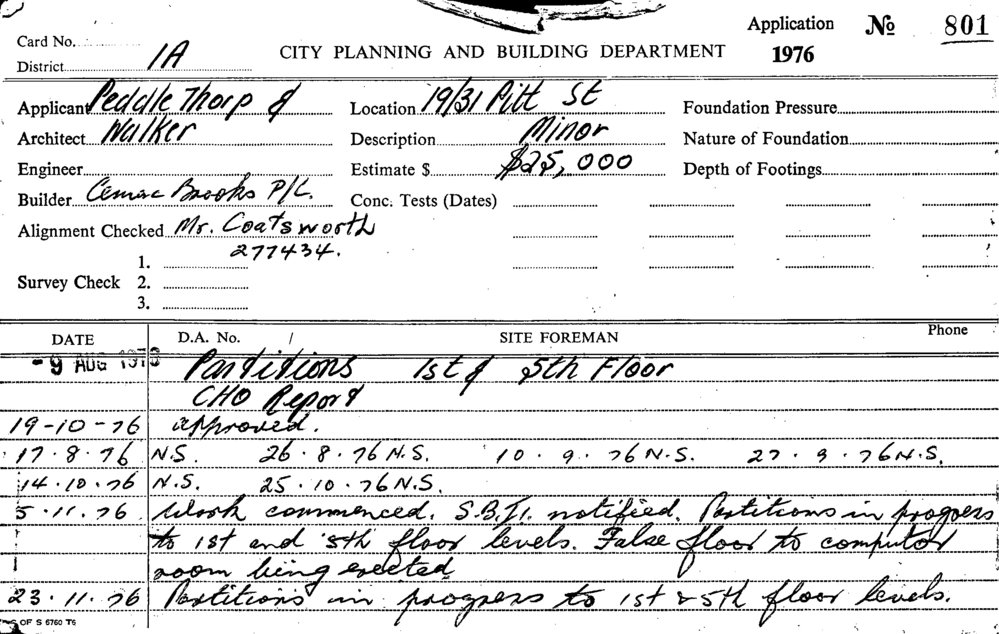 Application No 801
Card No.
1976
District 1A
CITY PLANNING AND BUILDING DEPARTMENT
Applicant Peddle Thorp &
Location 19/31 Pitt St
Foundation Pressure
Architect Walker
Description Minor
Nature of Foundation
Engineer
Estimate $ $25,000
Depth of Footings
Builder Cemac Brooks P/L.
Conc. Tests (Dates)
Alignment Checked Mr. Coatsworth
277434.
1.
Survey Check 2.
3.
DATE D.A. No. / SITE FOREMAN Phone
-9 AUG 1976 Partitions 1st & 5th Floor
CHO Report
19-10-76 approved.
17.8.76 N.S. 26.8.76 N.S. 10.9.76 N.S. 27.9.76 N.S.
14.10.76 N.S. 25.10.76 N.S.
5.11.76 Work commenced. S.B.I. notified. Partitions in progress
to 1st and 5th floor levels. False floor to computor
room being erected
23.11.76 Partitions in progress to 1st & 5th floor levels.
OF S 6760 T6